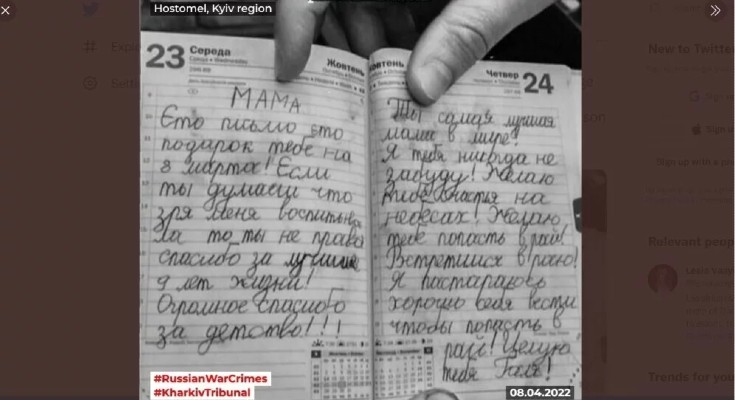 Hostomel, Kyiv region
23 Середа
Жовтень
МАМА
Єто письмо єто
подарок тебе на
8 марта! Если
ты думаеш что
зря меня воспитыва
ла то ты не права
спасибо за лучшие
9 лет жизни!
Огромное спасибо
за детство!!!
Жовтень
Четвер 24
Ты самая лучшая
мама в мире!
Я тебя никогда не
забуду! Желаю
тебе счастья на
небесах! Желаю
тебе попасть в рай!
Встретимся в раю!
Я постараюсь
хорошо себя вести
чтобы попасть в
рай! Целую
тебя Галя!
#RussianWarCrimes
#KharkivTribunal
08.04.2022
New to Twitter
Sign up with a p
Relevant peop
Trends for you